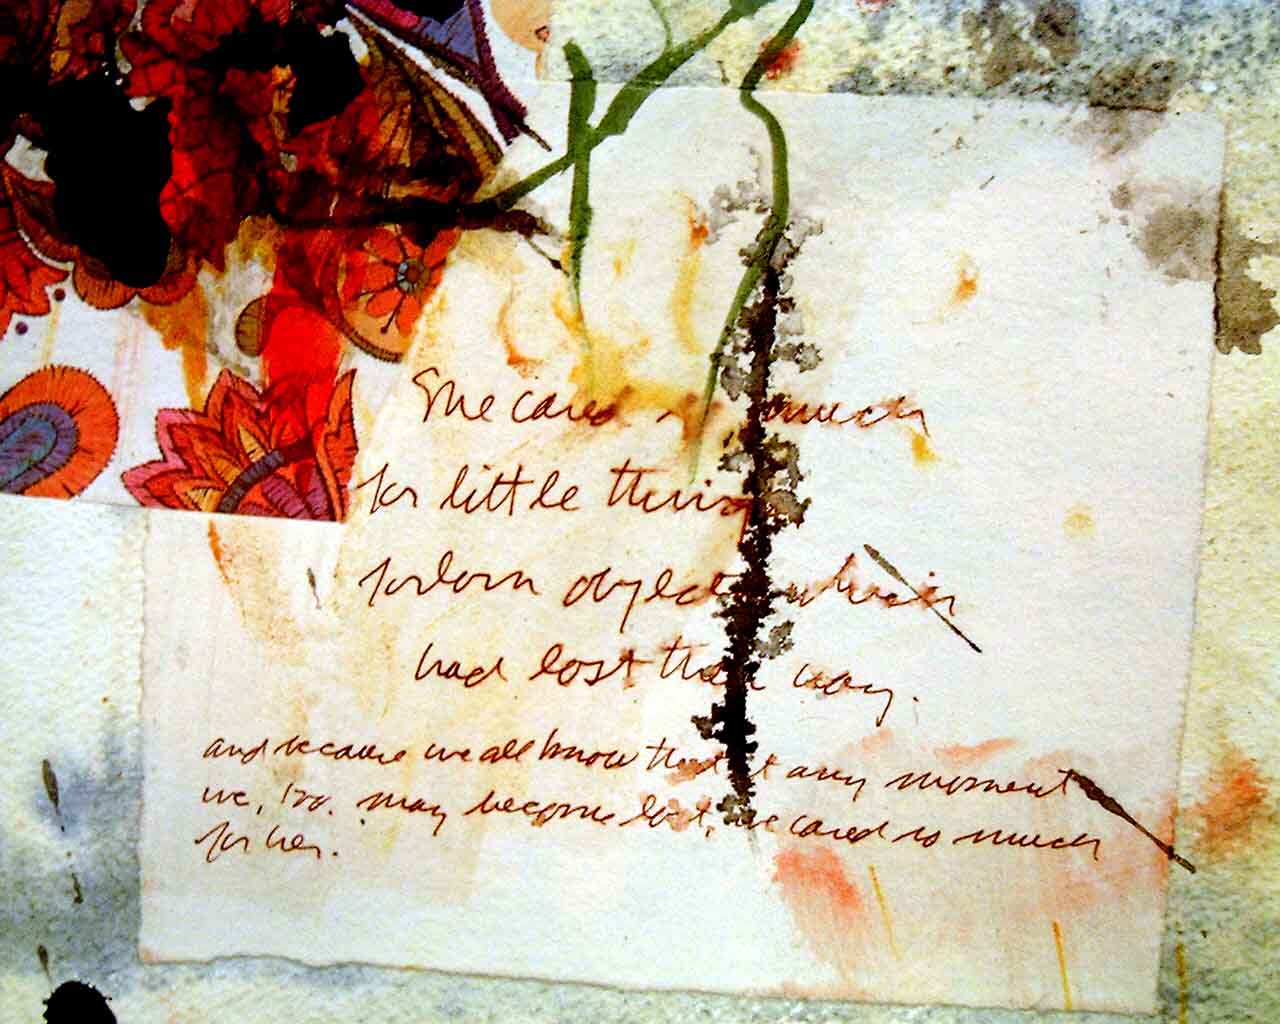 She cared so much
for little things
forlorn objects which
had lost their way.
and because we all know that at any moment
we, too. may become lost, we cared so much
for her.